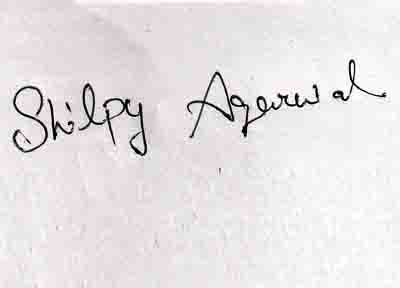 Shilpy Agarwal